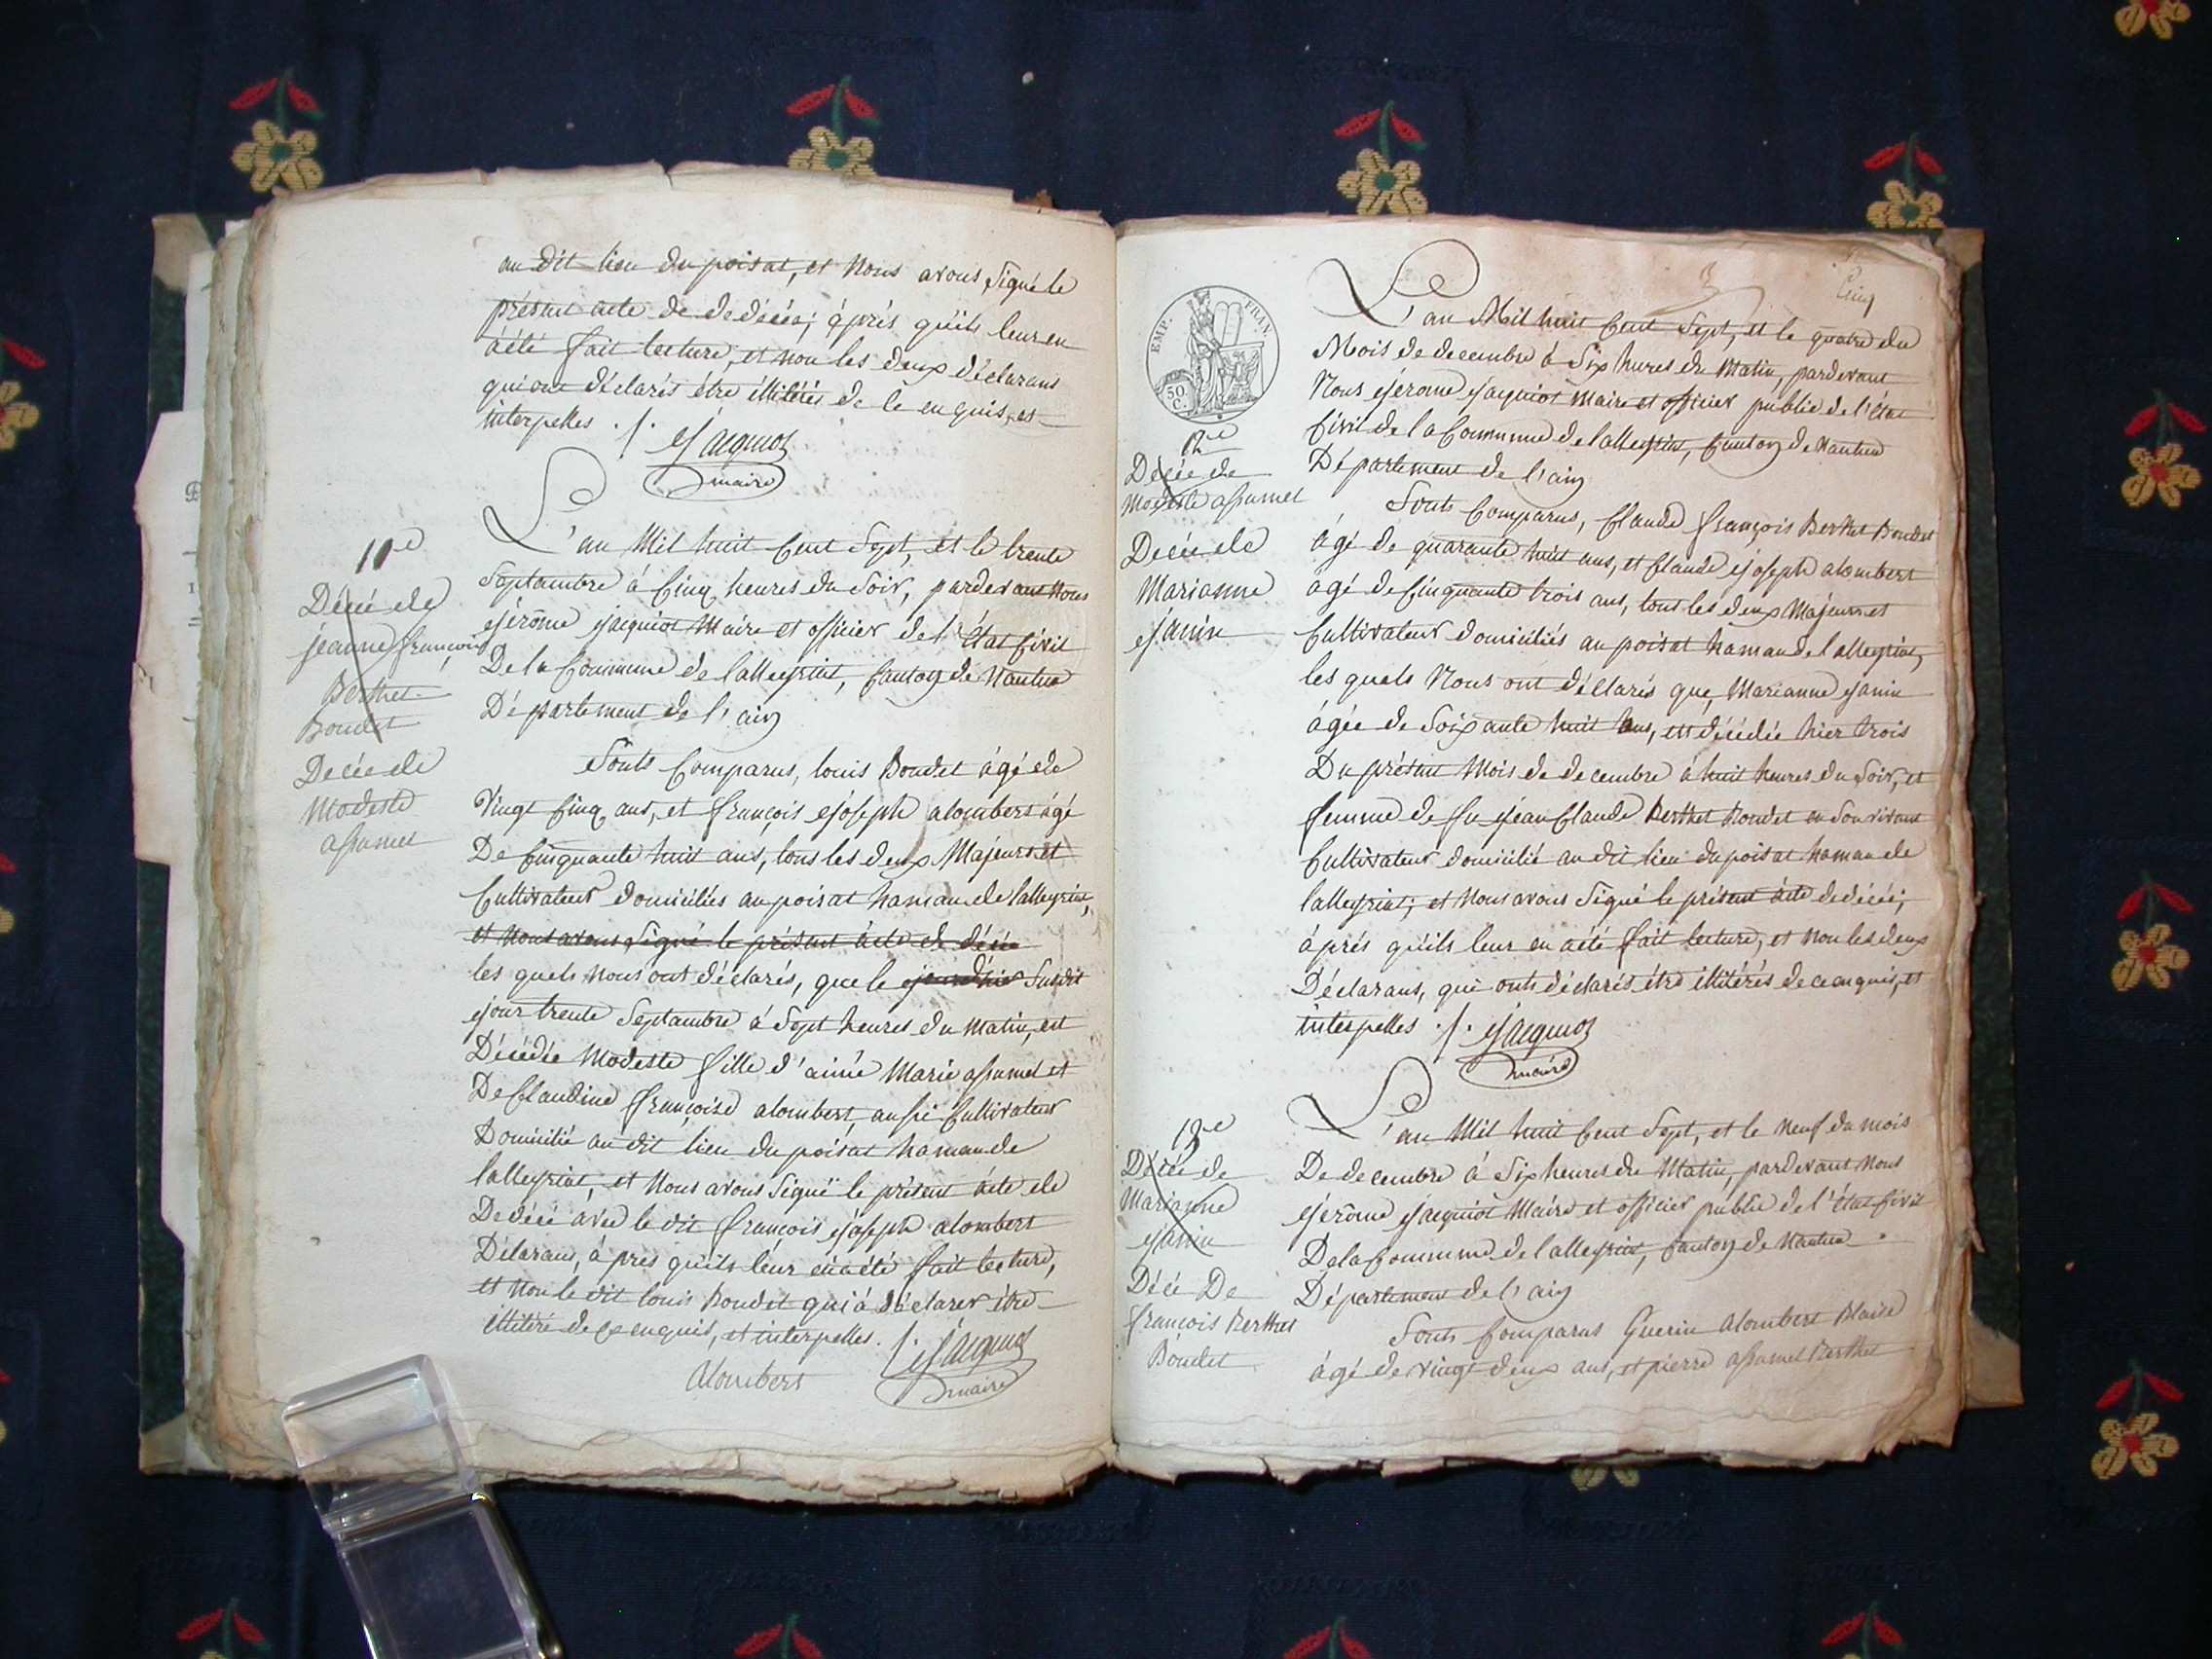 au dit lieu du poisat, et Nous avons Signé le
présent acte de dedécée; àprés qu'ils leur en
àété fait lecture, et non les deux déclarans
qui ont déclarés étre illitérés de ce enquis, et
interpelles ./. Jacquiot
maire
11e
Décée de
jeanne françoise
Berthet
Boudet
Decée de
Modeste
assumel
L'an Mil huit Cent Sept, et le trente
Septambre à Cinq heures du Soir, pardevant Nous
jérôme jacquiot Maire et officier de l'État Civil
De la Commune de lalleyriat, Canton de Nantua
Département de l'ain
Sonts Comparus, louis Boudet àgé de
Vingt Cinq ans, et françois joseph alombert àgé
De Cinquante huit ans, tous les deux Majeurs et
Cultivateur domiciliés au poisat hamau de lalleyriat,
et Nous avons Signé le présent àcte de décée
les quels nous ont déclarés, que le jour d'hier Susdit
jour trente Septambre à Sept heures du Matin, est
Décédée Modeste fille d'aimé Marie assumel et
De Claudine françoise alombert, aussi Cultivateur
Domicilié au dit lieu du poisat hamau de
lalleyriat, et Nous avons Signé le présent àcte de
Dedécé avec le dit françois joseph alombert
Déclarans, à pres qu'ils leur en àété fait lecture,
et Non le dit louis Boudet qui à déclarer être
illitéré de ce enquis, et interpelles ./. Jacquiot
Alombert
maire
Cinq
EMP. FRAN.
50
C.
12e
Decée de
Modeste assumel
Decée de
Marianne
janin
L'an Mil huit Cent Sept, et le quatre du
Mois de decembre à Six hures du Matin, pardevant
Nous jérome jacquiot Maire et officier publie de l'État
Civil de la Commune de lalleyriat, Canton de Nantua
Département de l'ain
Sonts Comparus, Claude françois Berthet Boudet
àgé de quarante huit ans, et Claude joseph alombert
àgé de Cinquante trois ans, tous les deux Majeurs et
Cultivateur domiciliés au poisat hamau de lalleyriat,
les quels Nous ont déclarés que, Marianne janin
àgée de Soixante huit ans, est décédée hier trois
Du présent Mois de decembre à huit heures du Soir, et
femme de fu jean Claude Berthet Boudet en Son vivant
Cultivateur domicilié au dit lieu du poisat hamau de
lalleyriat; et Nous avons Signé le présent àcte dedécée;
àprés qu'ils leur en àété fait lecture, et non les deux
Déclarans, qui onts déclarés étre illitérés de ce enquis, et
interpelles ./. Jacquiot
maire
13e
Décée de
Marianne
janin
Décé De
françois Berthet
Boudet
L'an Mil huit Cent Sept, et le Neuf du mois
De decembre à Six heures du Matin, pardevant Nous
jérôme jacquiot Maire et officier publie de l'État Civil
De la Commune de lalleyriat, Canton de Nantua
Département de l'ain
Sonts Comparus Guerin Alombert Blaise
àgé de vingt deux ans, et pierre assumel Berthet